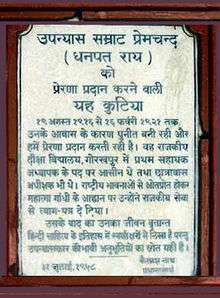 उपन्यास सम्राट प्रेमचन्द
(धनपत राय)
को
प्रेरणा प्रदान करने वाली
यह कुटिया
१९ अगस्त १९१६ से १६ फर्वरी १९२१ तक
उनके आवास के कारण पुनीत बनी रही और
हमें प्रेरणा प्रदान करती रही है। वह राजकीय
दीक्षा विद्यालय, गोरखपुर में प्रथम सहायक
अध्यापक के पद पर आसीन थे तथा छात्रावास
अधीक्षक भी थे। राष्ट्रीय भावनाओं से ओतप्रोत होकर
महात्मा गांधी के आह्वान पर उन्होंने राजकीय सेवा
से त्याग-पत्र दे दिया।
उसके बाद का उनका जीवन वृत्तान्त
हिन्दी साहित्य के इतिहास में स्वर्णाक्षरों में लिखा है परन्तु
उपन्यासकार की भावी अनुभूतियों का स्रोत यही है।
जुलाई, १९५८